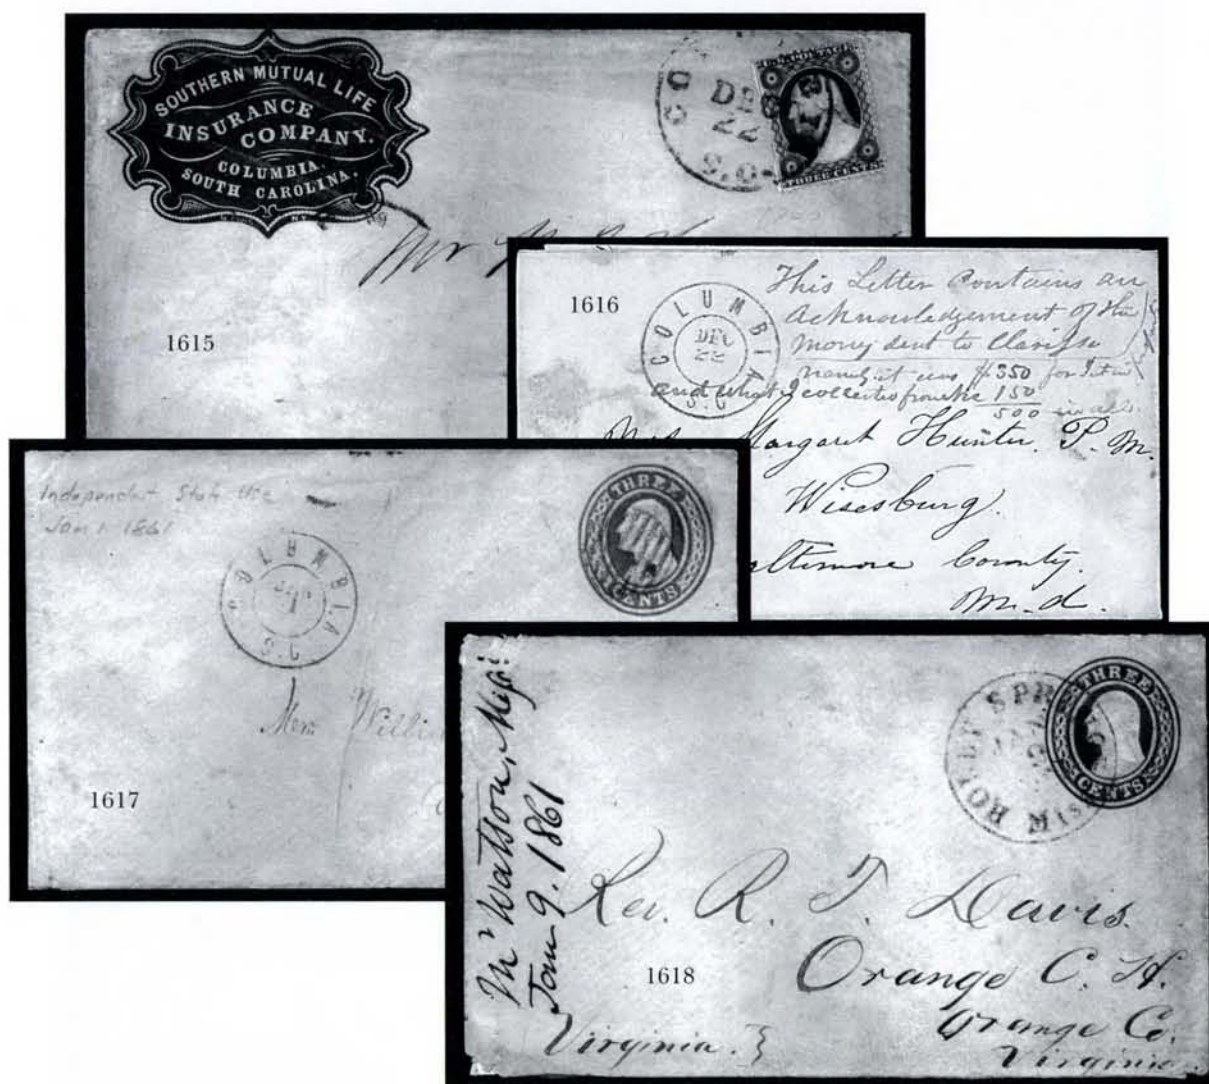 SOUTHERN MUTUAL LIFE
INSURANCE
COMPANY.
COLUMBIA,
SOUTH CAROLINA.
DEC
22
S.C.
THREE CENTS
Mr
1615
1616
COLUMBIA
DEC
22
S.C
This Letter Contains an
Acknowledgement of the
money sent to Clarissa
namely it was $350 for
and what I collected from 150
500 in all.
Margaret Hunter. P. M.
Wisesburg.
Baltimore County.
M.d.
Independent State Use
Jan 1 1861
COLUMBIA
JAN
1
S.C
THREE
CENTS
1617
THREE
CENTS
HOLLY SPR
MIS
Mr Watson, Missi
Jan 9. 1861
Rev. R. T. Davis.
1618
Orange C. H.
Orange Co.
Virginia. }
Virginia.